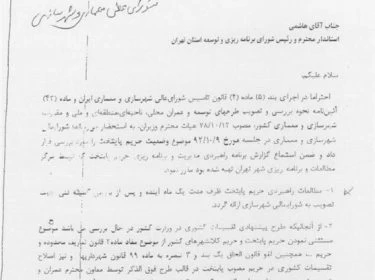 شورای عالی معماری و شهرسازی
جناب آقای هاشمی
استاندار محترم و رئیس شورای برنامه ریزی و توسعه استان تهران
سلام علیکم
احتراما در اجرای بند (۵) ماده (۴) قانون تاسیس شورای‌عالی شهرسازی و معماری ایران و ماده (۴۲)
آئین‌نامه نحوه بررسی و تصویب طرحهای توسعه و عمران محلی، ناحیه‌ای، منطقه‌ای و ملی و مقررات
شهرسازی و معماری کشور، مصوب ۷۸/۱۰/۱۲ هیات محترم وزیران، به استحضار می‌رساند شورایعالی
شهرسازی و معماری در جلسه مورخ ۹۲/۱۰/۹ موضوع وضعیت حریم پایتخت را مورد بررسی قرار
داد و ضمن استماع گزارش برنامه راهبردی مدیریت و برنامه ریزی حریم پایتخت که توسط مرکز
مطالعات و برنامه ریزی شهر تهران تهیه شده بود مقرر نمود:
۱- مطالعات راهبردی حریم پایتخت ظرف مدت یک ماه آینده و پس از کمیته فنی جهت
تصویب به شورایعالی شهرسازی ارائه گردد.
۲- از آنجائیکه طرح پیشنهادی تقسیمات کشوری در وزارت کشور در حال بررسی می باشد موضوع
مستثنی نمودن حریم پایتخت و حریم کلانشهرهای کشور از موضوع مفاد ماده ۲ قانون تعاریف محدوده و
حریم همچنین لغو قانون الحاق یک بند و ۳ تبصره به ماده ۹۹ قانون شهرداریها و نیز اصلاح
تقسیمات کشوری در حریم مصوب پایتخت در قالب طرح فوق الذکر توسط معاون محترم عمران و